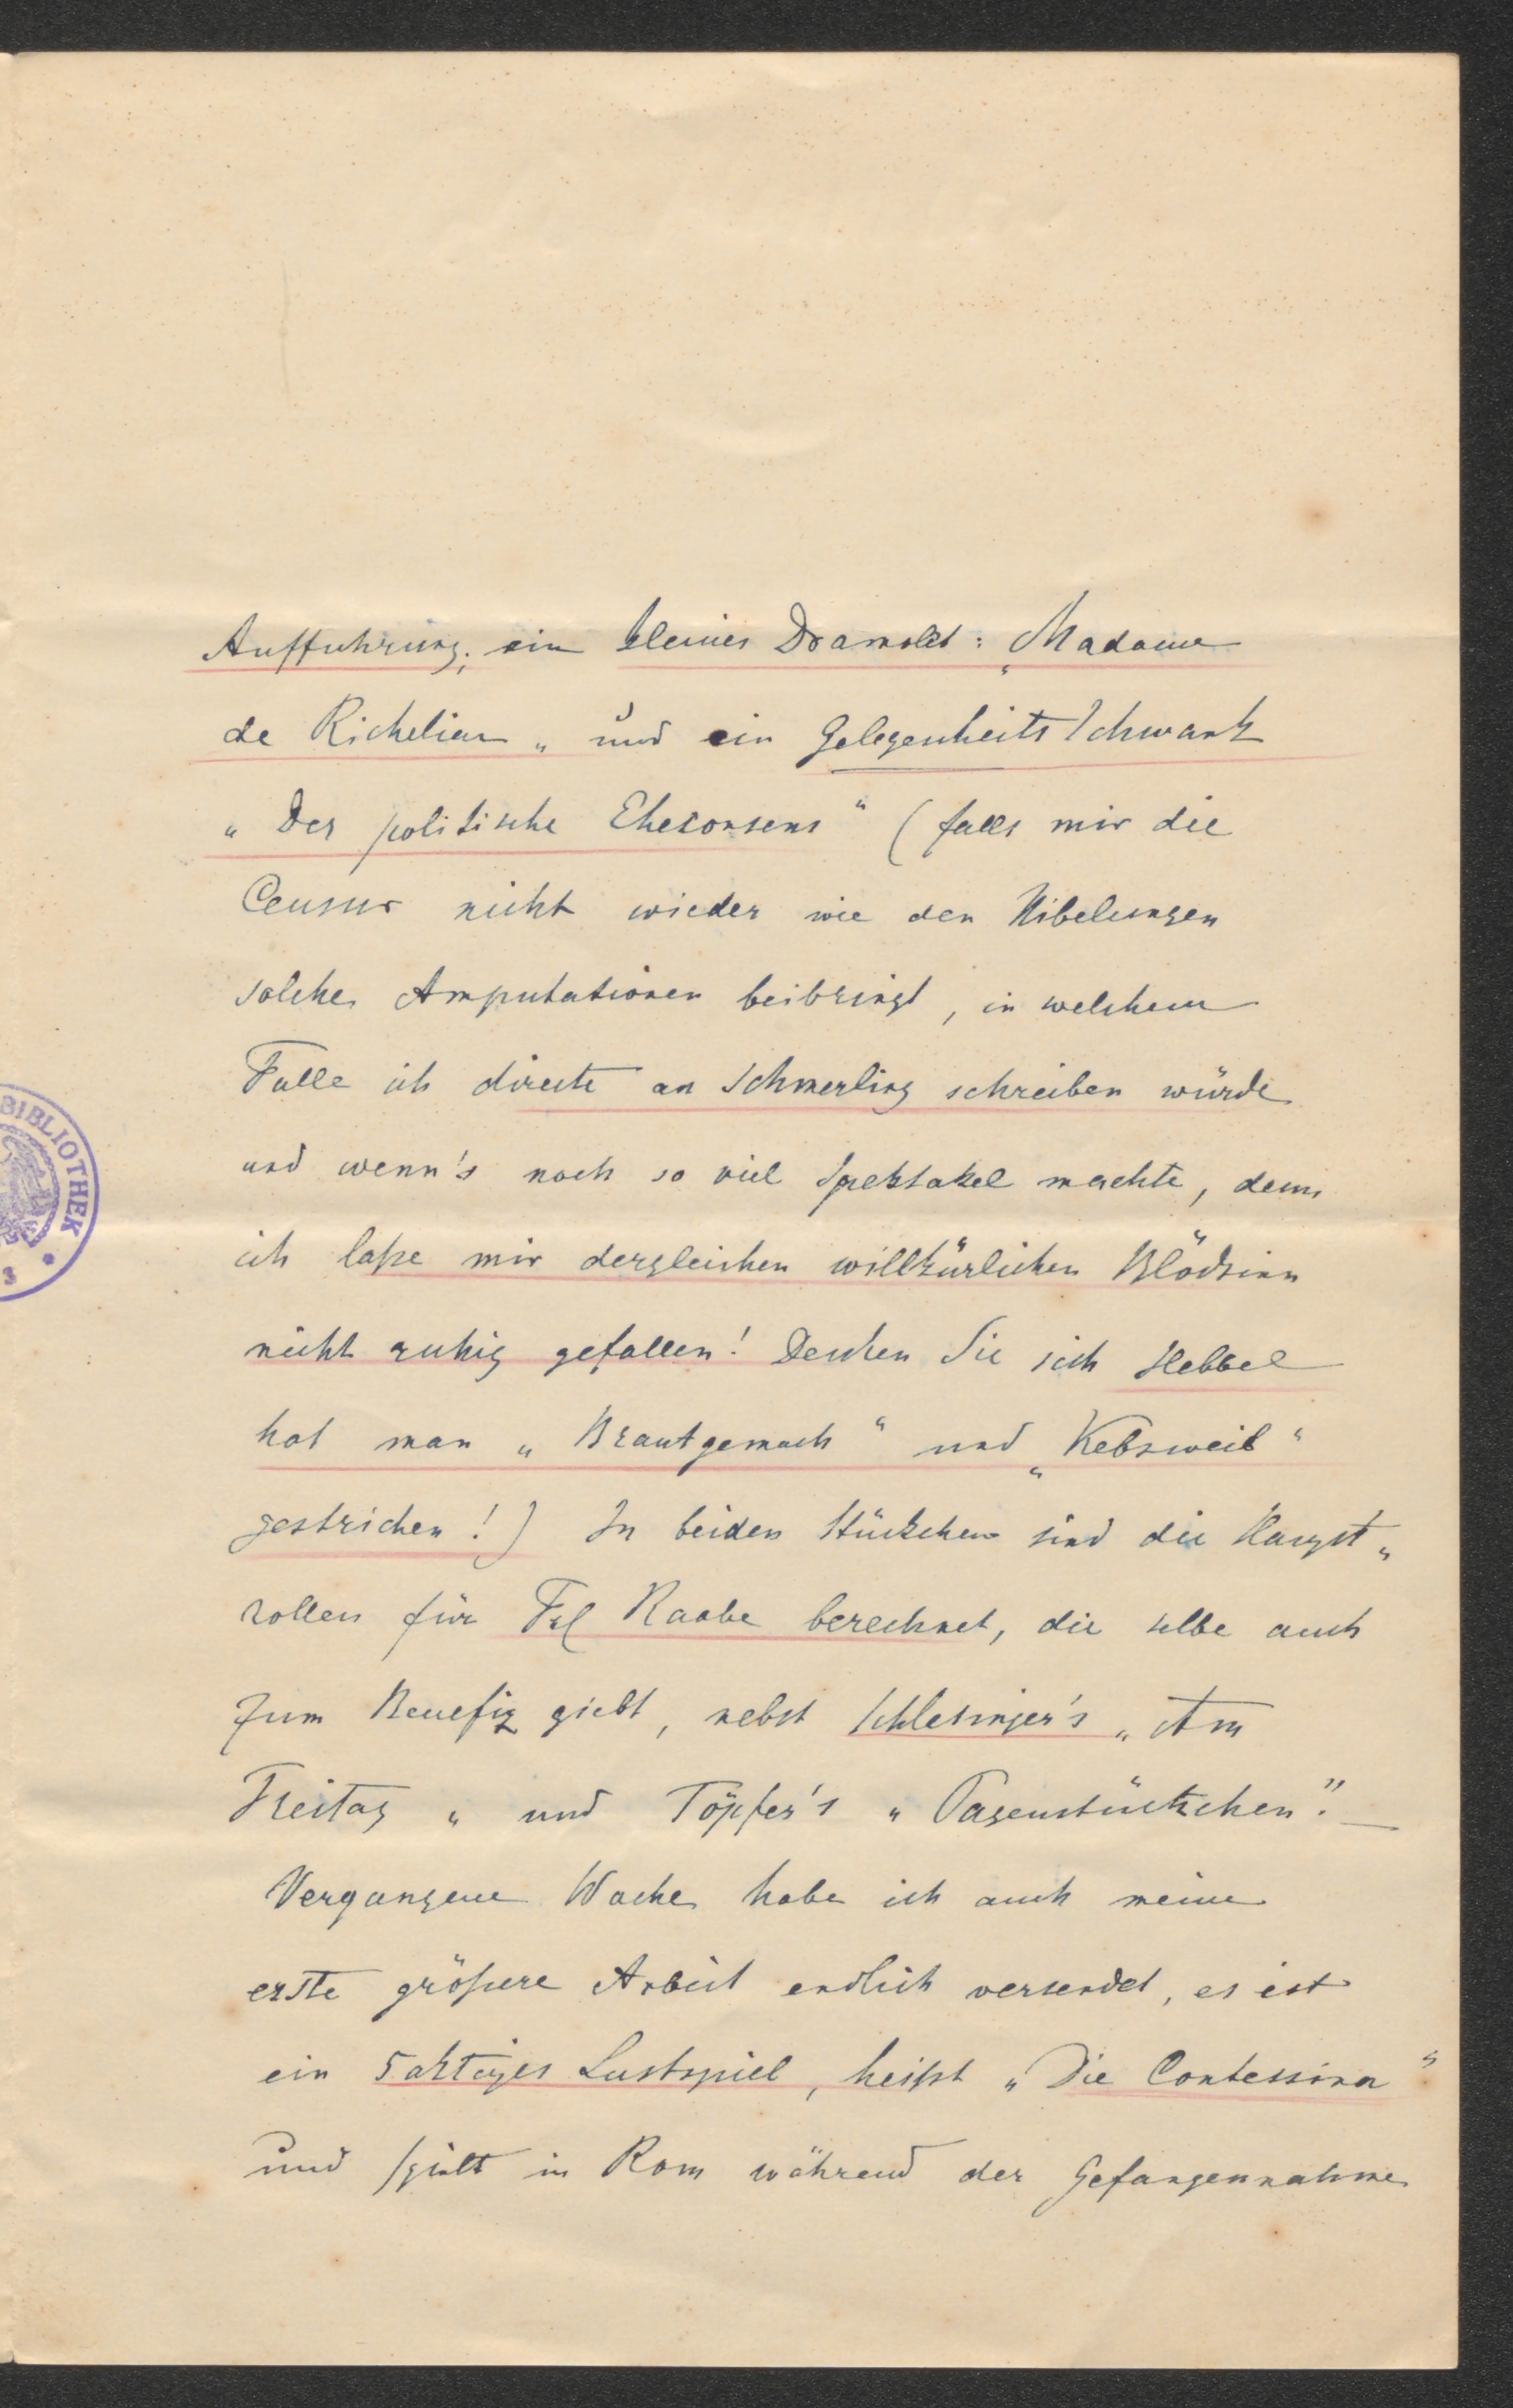 Aufführung; ein kleines Dramolet: „Madame
de Richelieu„ und ein Gelegenheits Schwank
„Der politische Ehekonsens“ (falls mir die
Censur nicht wieder wie den Nibelungen
solche Amputationen beibringt, in welchem
Falle ich directe an Schmerling schreiben würde
und wenn's noch so viel Spektakel machte, denn
ich laße mir dergleichen willkürlichen Blödsinn
nicht ruhig gefallen! Denken Sie sich Hebbel
hat man „Brautgemach“ und „Kebsweib“
gestrichen!) In beiden Stückchen sind die Haupt„
rollen für Frl Raabe berechnet, die selbe auch
zum Benefiz giebt, nebst Schlesinger's „Am
Freitag„ und Töpfer's „Pagenstückchen“. —
Vergangene Woche habe ich auch meine
erste größere Arbeit endlich versendet, es ist
ein 5 aktiges Lustspiel, heißt „Die Contessina“
und spielt in Rom während der Gefangennahme
BIBLIOTHEK
3